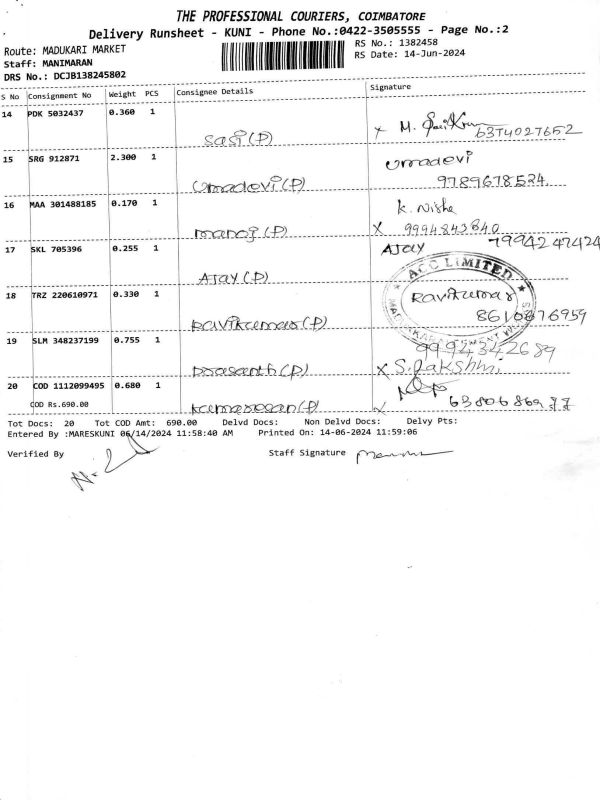 THE PROFESSIONAL COURIERS, COIMBATORE
Delivery Runsheet - KUNI - Phone No.:0422-3505555 - Page No.:2
Route: MADUKARI MARKET
RS No.: 1382458
Staff: MANIMARAN
RS Date: 14-Jun-2024
DRS No.: DCJB138245802
S No Consignment No Weight PCS Consignee Details Signature
14 PDK 5032437 0.360 1
Sasi (P) x M.
15 SRG 912871 2.300 1 Umadevi
Umadevi (P) 9789678524
16 MAA 301488185 0.170 1 K. Nisha
Manoj (P) X 9994843840
17 SKL 705396 0.255 1 AJAY 7994247424
AJAY (P)
ACC LIMITED
18 TRZ 220610971 0.330 1 Ravikumar
Ravikumar (P) 8610876959
19 SLM 348237199 0.755 1 9994342689
Prasanth (P) x S.
20 COD 1112099495 0.680 1
COD Rs.690.00 Kumaresan (P)
Tot Docs: 20 Tot COD Amt: 690.00 Delvd Docs: Non Delvd Docs: Delvy Pts:
Entered By :MARESKUNI 06/14/2024 11:58:40 AM Printed On: 14-06-2024 11:59:06
Verified By Staff Signature